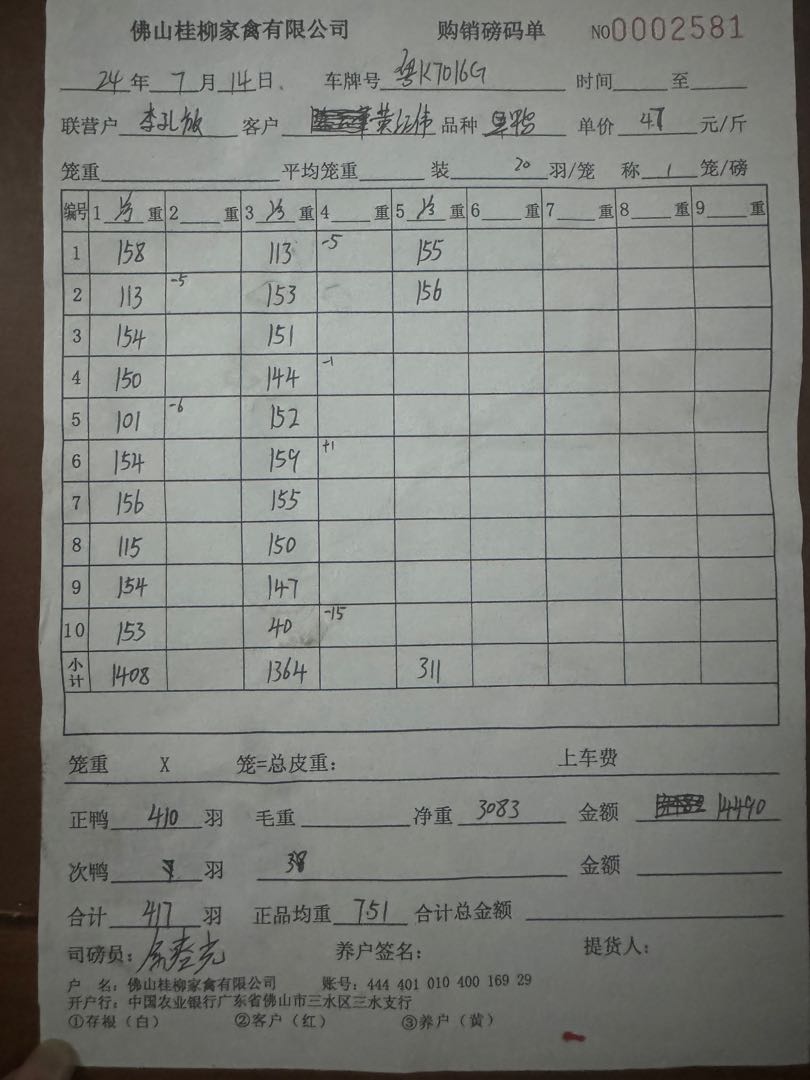 佛山桂柳家禽有限公司 购销磅码单 NO0002581
24年7月14日 车牌号 粤K7016G 时间 至
联营户 客户 黄江伟 品种 单价 4.7 元/斤
笼重 平均笼重 装 20 羽/笼 称 1 笼/磅
编号 1 净重 2 重 3 净重 4 重 5 净重 6 重 7 重 8 重 9 重
1 158 113 -5 155
2 113 -5 153 156
3 154 151
4 150 144 -1
5 101 -6 152
6 154 159 +1
7 156 155
8 115 150
9 154 147
10 153 40 -15
小计 1408 1364 311
笼重 X 笼=总皮重: 上车费
正鸭 410 羽 毛重 净重 3083 金额 14490
次鸭 7 羽 38 金额
合计 417 羽 正品均重 7.51 合计总金额
司磅员: 养户签名: 提货人:
户 名: 佛山桂柳家禽有限公司 账号: 444 401 010 400 169 29
开户行: 中国农业银行广东省佛山市三水区三水支行
①存根(白) ②客户(红) ③养户(黄)